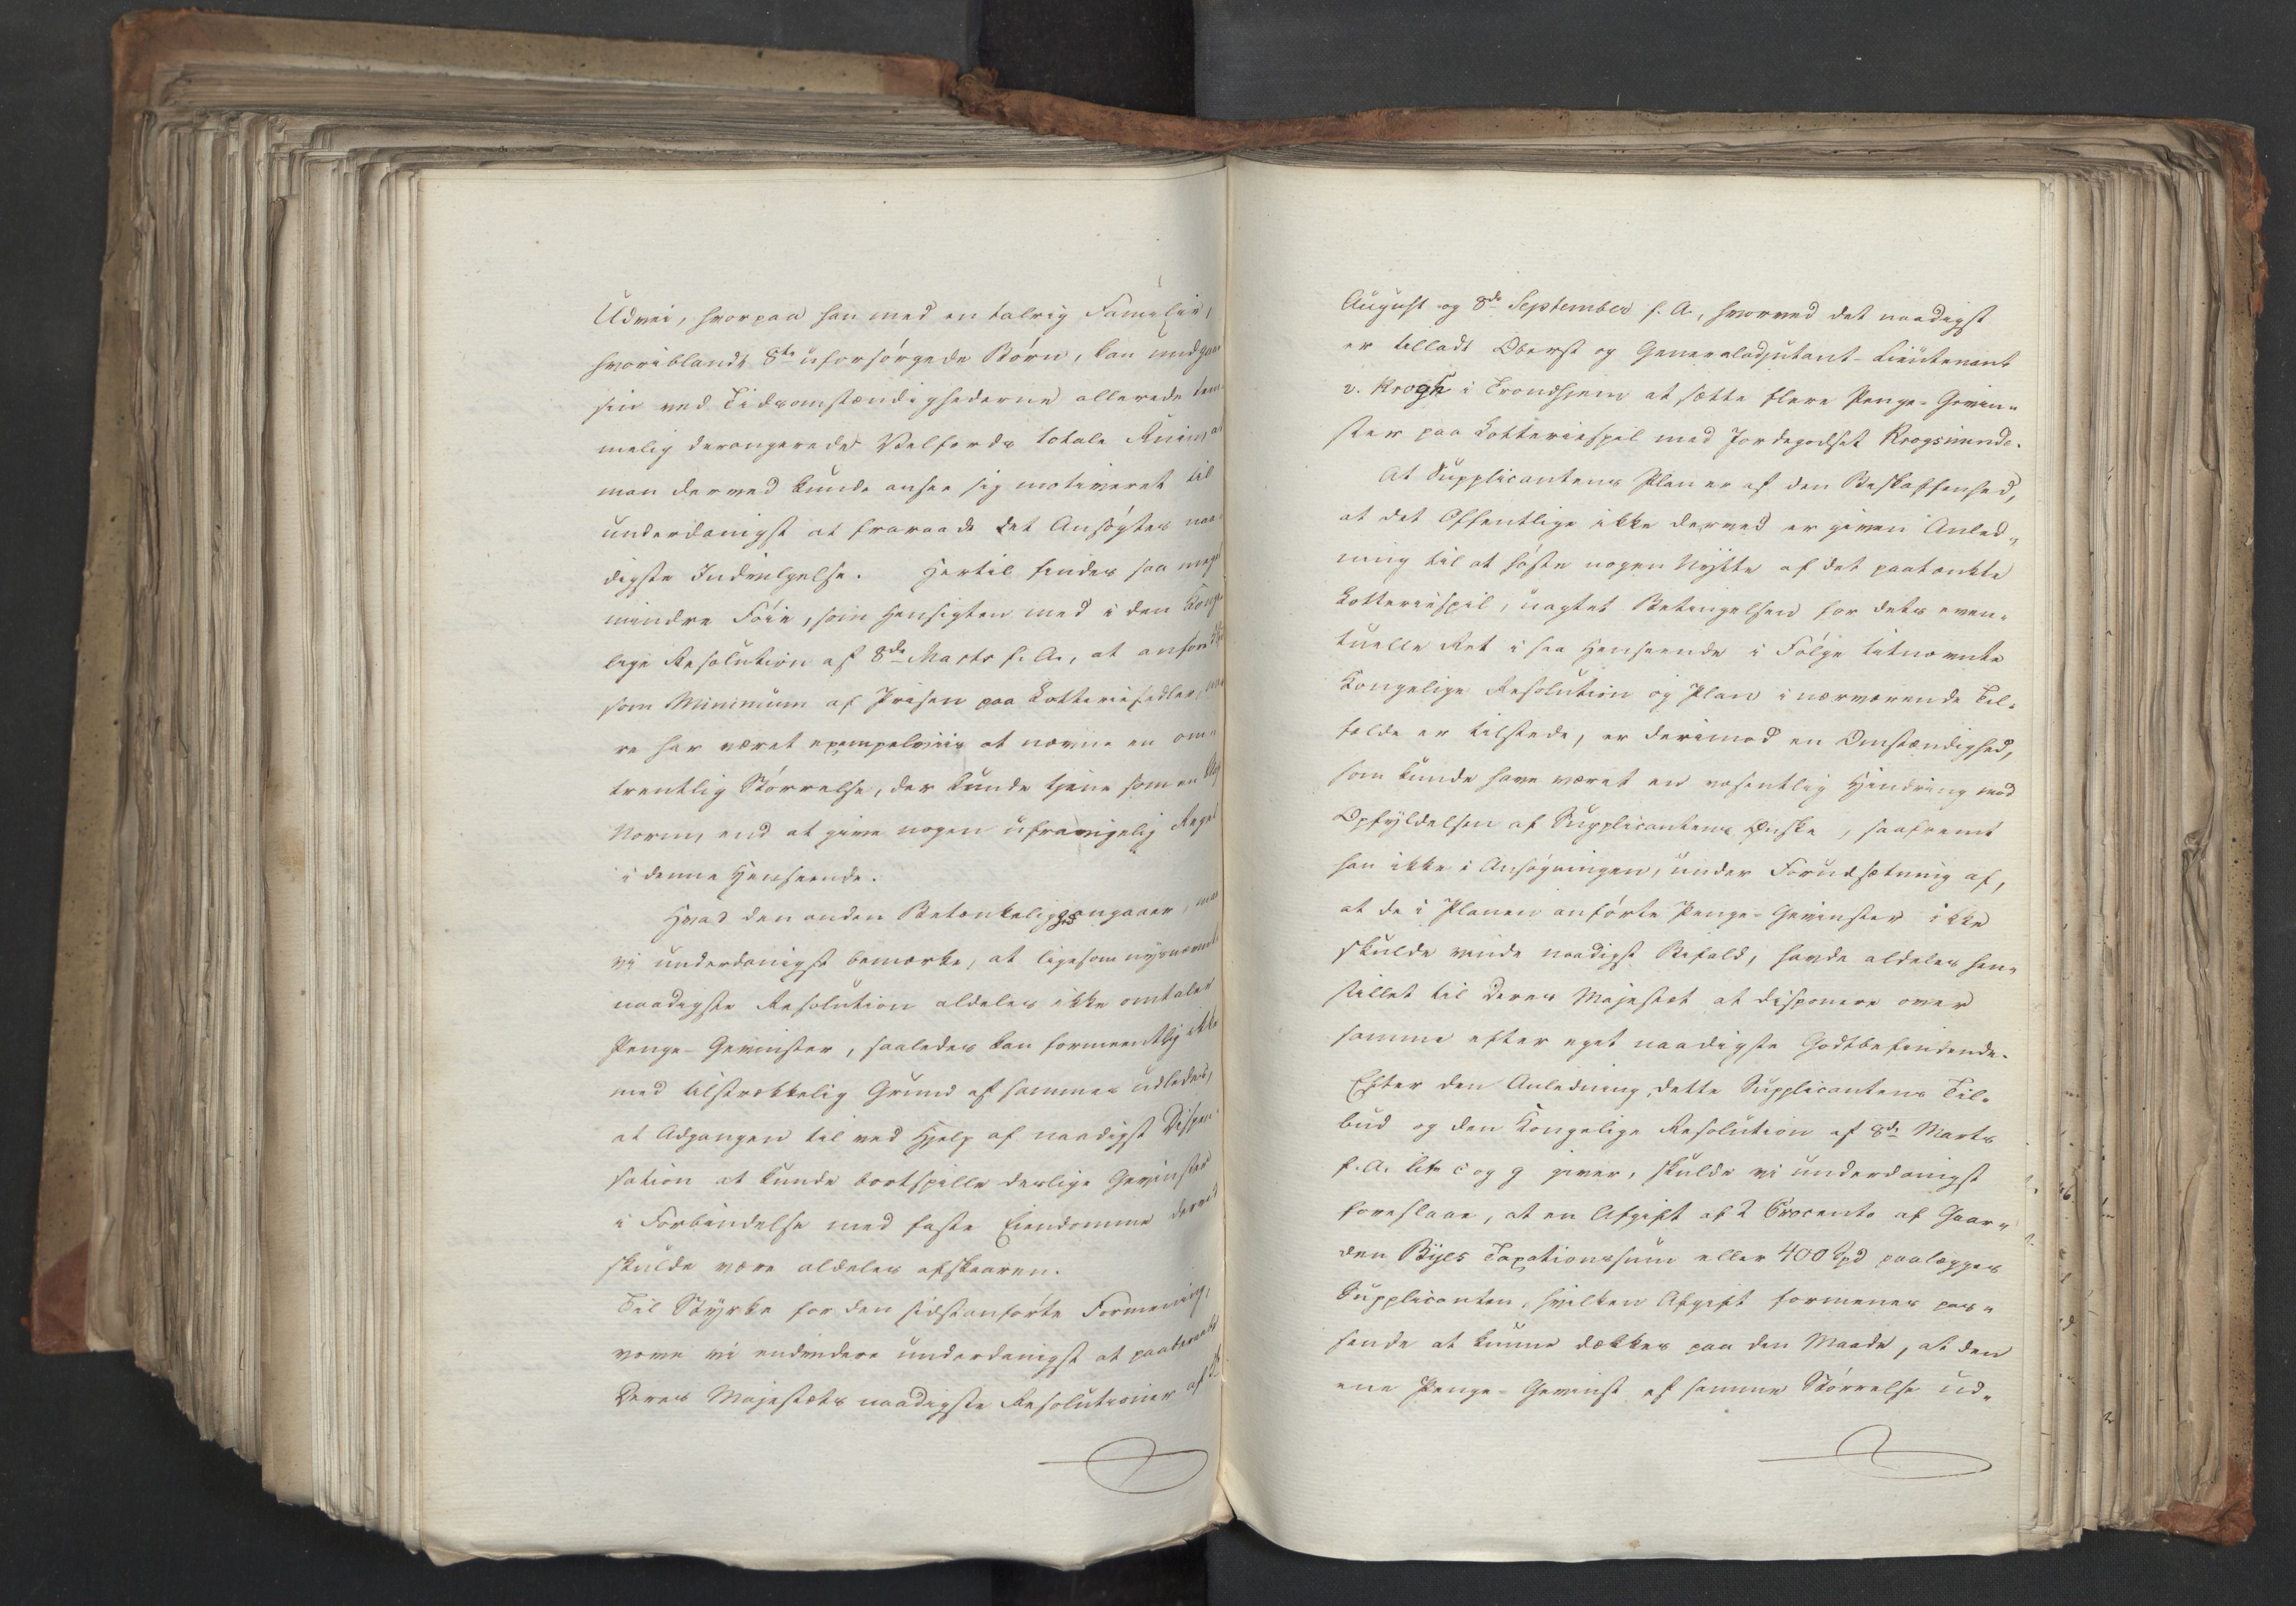 Udvei, hvorpaa han med en talrig Familie,
hvoriblandt 8te uforsørgede Børn, kan undgaae
sin ved Tidsomstændighederne allerede tem-
melig derangerede Velferds totale Ruin, at
man derved kunde ansee sig motiveret til
underdanigst at fraraade det Ansøgtes naa-
digste Indvilgelse. Hertil findes saa meget
mindre Føie, som Hensigten med i den Konge-
lige Resolution af 8de Marts f. A., at anføre
som Minimum af Prisen paa Lotteriesedler,
re har været exempelviis at nævne en om-
trentlig Størrelse, der kunde tjene som en
Norm, end at give nogen ufravigelig Regel
i denne Henseende.
Hvad den anden Betænkelighed angaaer, maa
vi underdanigst bemærke, at ligesom nysnævnte
naadigste Resolution aldeles ikke omtaler
Penge-Gevinster, saaledes kan formeentlig ikke
med tilstrækkelig Grund af samme udledes,
at Adgangen til ved Hjelp af naadigst Dispen-
sation at kunde bortspille deslige Gevinster
i Forbindelse med faste Eiendomme derved
skulde være aldeles afskaaren.
Til Styrke for den sidstanførte Formening,
vove vi endvidere underdanigst at paaberaabe
Deres Majestæts naadigste Resolutioner af
August og 8de September f. A., hvorved det naadigst
er tilladt Oberst og Generaladjutant-Lieutenant
v. Krogh i Trondhjem at sætte flere Penge-Gevin-
ster paa Lotteriespil med Jordegodset Rrogsminde.
At Supplicantens Plan er af den Beskaffenhed,
at det Offentlige ikke derved er given Anled-
ning til at høste nogen Nytte af det paatænkte
Lotteriespil, uagtet Betingelsen for dets even-
tuelle Ret i saa Henseende i Følge titnævnte
Kongelige Resolution og Plan i nærværende Til-
fælde er tilstede, er derimod en Omstændighed,
som kunde have været en væsentlig Hindring mod
Opfyldelsen af Supplicantens Ønske, saafremt
han ikke i Ansøgningen, under Forudsætning af,
at de i Planen anførte Penge-Gevinster ikke
skulde vinde naadigst Bifald, havde aldeles hen-
stillet til Deres Majestæt at disponere over
samme efter eget naadigste Godtbefindende.
Efter den Anledning, dette Supplicantens Til-
bud og den Kongelige Resolution af 8de Marts
f. A. litr c og g giver, skulde vi underdanigst
foreslaae, at en Afgift af 2 Procento af Gaar-
den Byes Taxationssum eller 400 Spd paalægges
Supplicanten, hvilken Afgift formenes pas-
sende at kunne dækkes paa den Maade, at den
ene Penge-Gevinst af samme Størrelse ud-